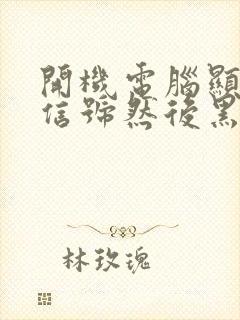 開機電腦顯
信號然後黑
林玫瑰